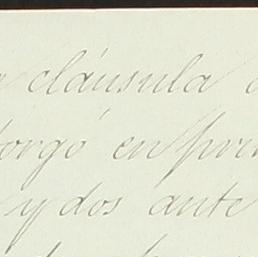 cláusula
torgó en pri
y dos ante